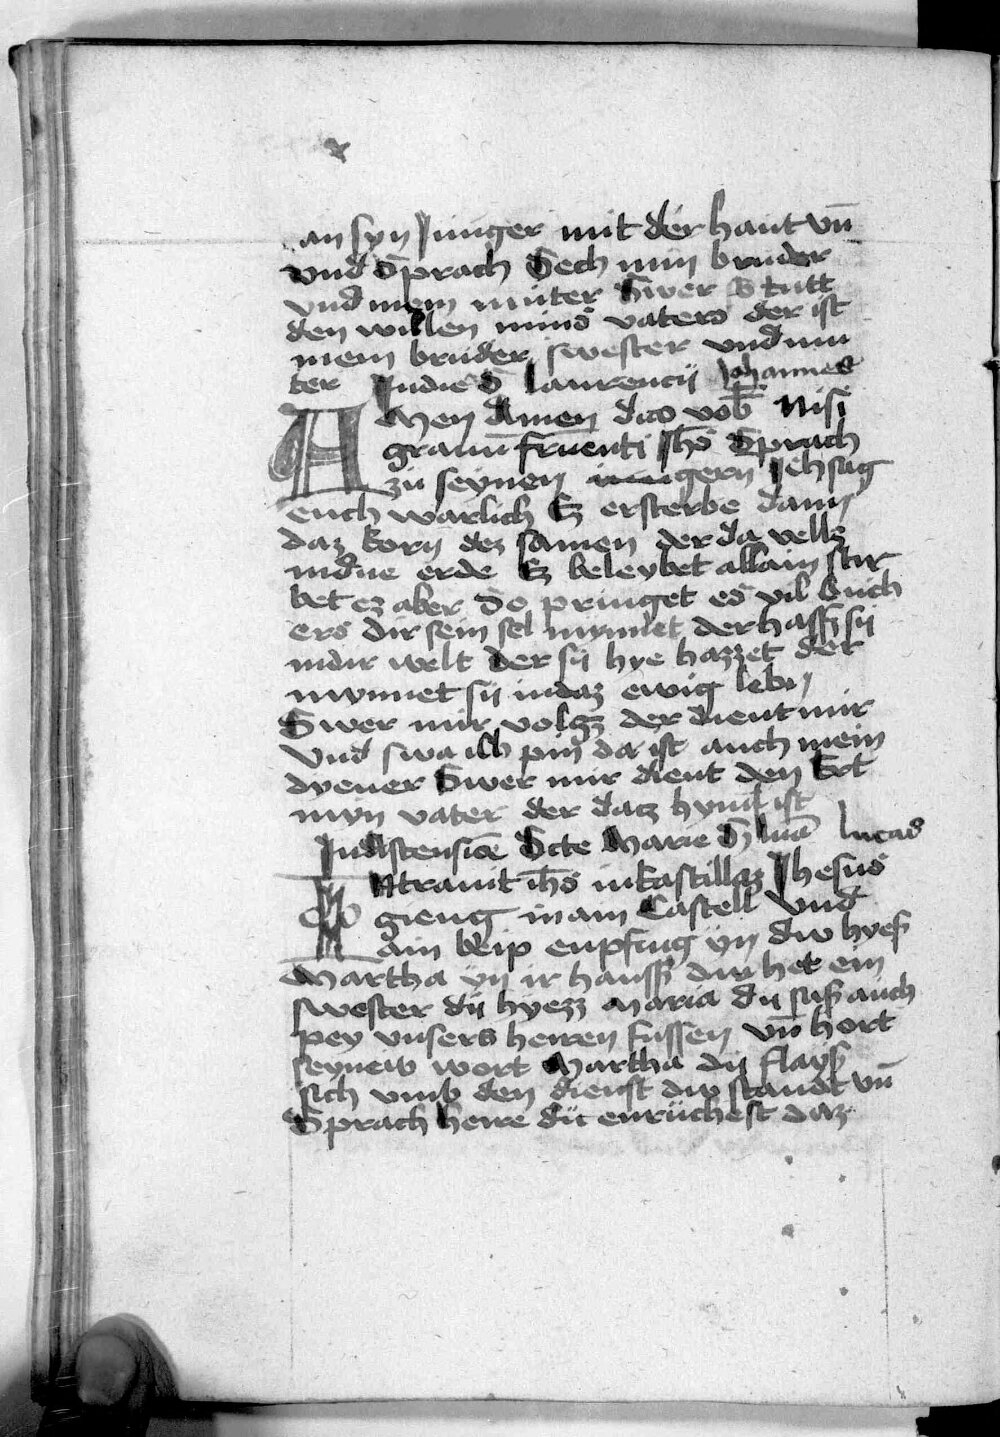 an syn Junger mit der hant vn̄
vnd Sprach Sech min bruder
vnd mein muter Swer so tutt
den willen mins vaters der ist
mein bruder swester vnd mu
ter In die S laurencij Johannes
Amen Amen dico vob̄ Nisi
granū frūenti Jhs̄ Sprach
zu seynen iungern Ich sag
euch warlich Ez ersterbe dann
daz korn dez samen der da vellz
in die erde Ez beleybet allain stir
bet ez aber So pringet es vil fruch
ers dir sein sel mynnet der hassz sii
in dir welt der sii hye hazzet der
mynnet sii in daz ewig leben
Swer mir volgz der dient mir
Vnd swa ich pin da ist auch mein
dyener Swer mir dient den Ert
myn vater der datz hymel ist
In Ascensiōe Scte Marie lucas
INtrauit ih̄s in kastillaz Jhesus
gieng in ain Castell Vnd
ain weip enpfing yn diw hyes
Martha yn ir hauss diw het ein
swester dii hyezz Maria dii sass auch
pey vnsers herren fussen vn̄ hort
seyneiv wort Martha dii flays
sich vmb den dienst diw standt vn̄
Sprach herre dü enrüchest daz